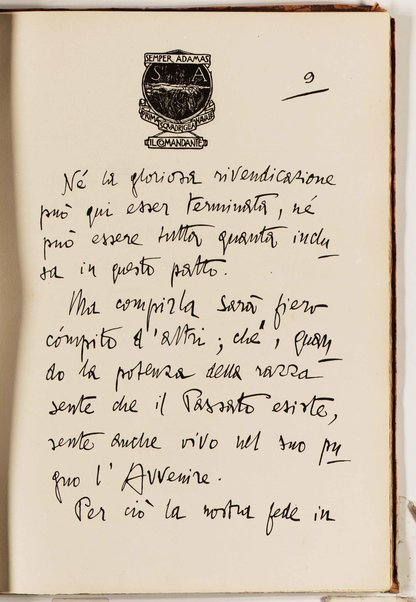 SEMPER ADAMAS
S A
PRIMA SQUADRIGLIA NAVALE
IL COMANDANTE
9
Né la gloriosa rivendicazione
può qui esser terminata, né
può essere tutta quanta inclu
sa in questo patto.
Ma compirla sarà fiero
cómpito d'altri; ché, quan
do la potenza della razza
sente che il Passato esiste,
sente anche vivo nel suo pu
gno l'Avvenire.
Per ciò la nostra fede in